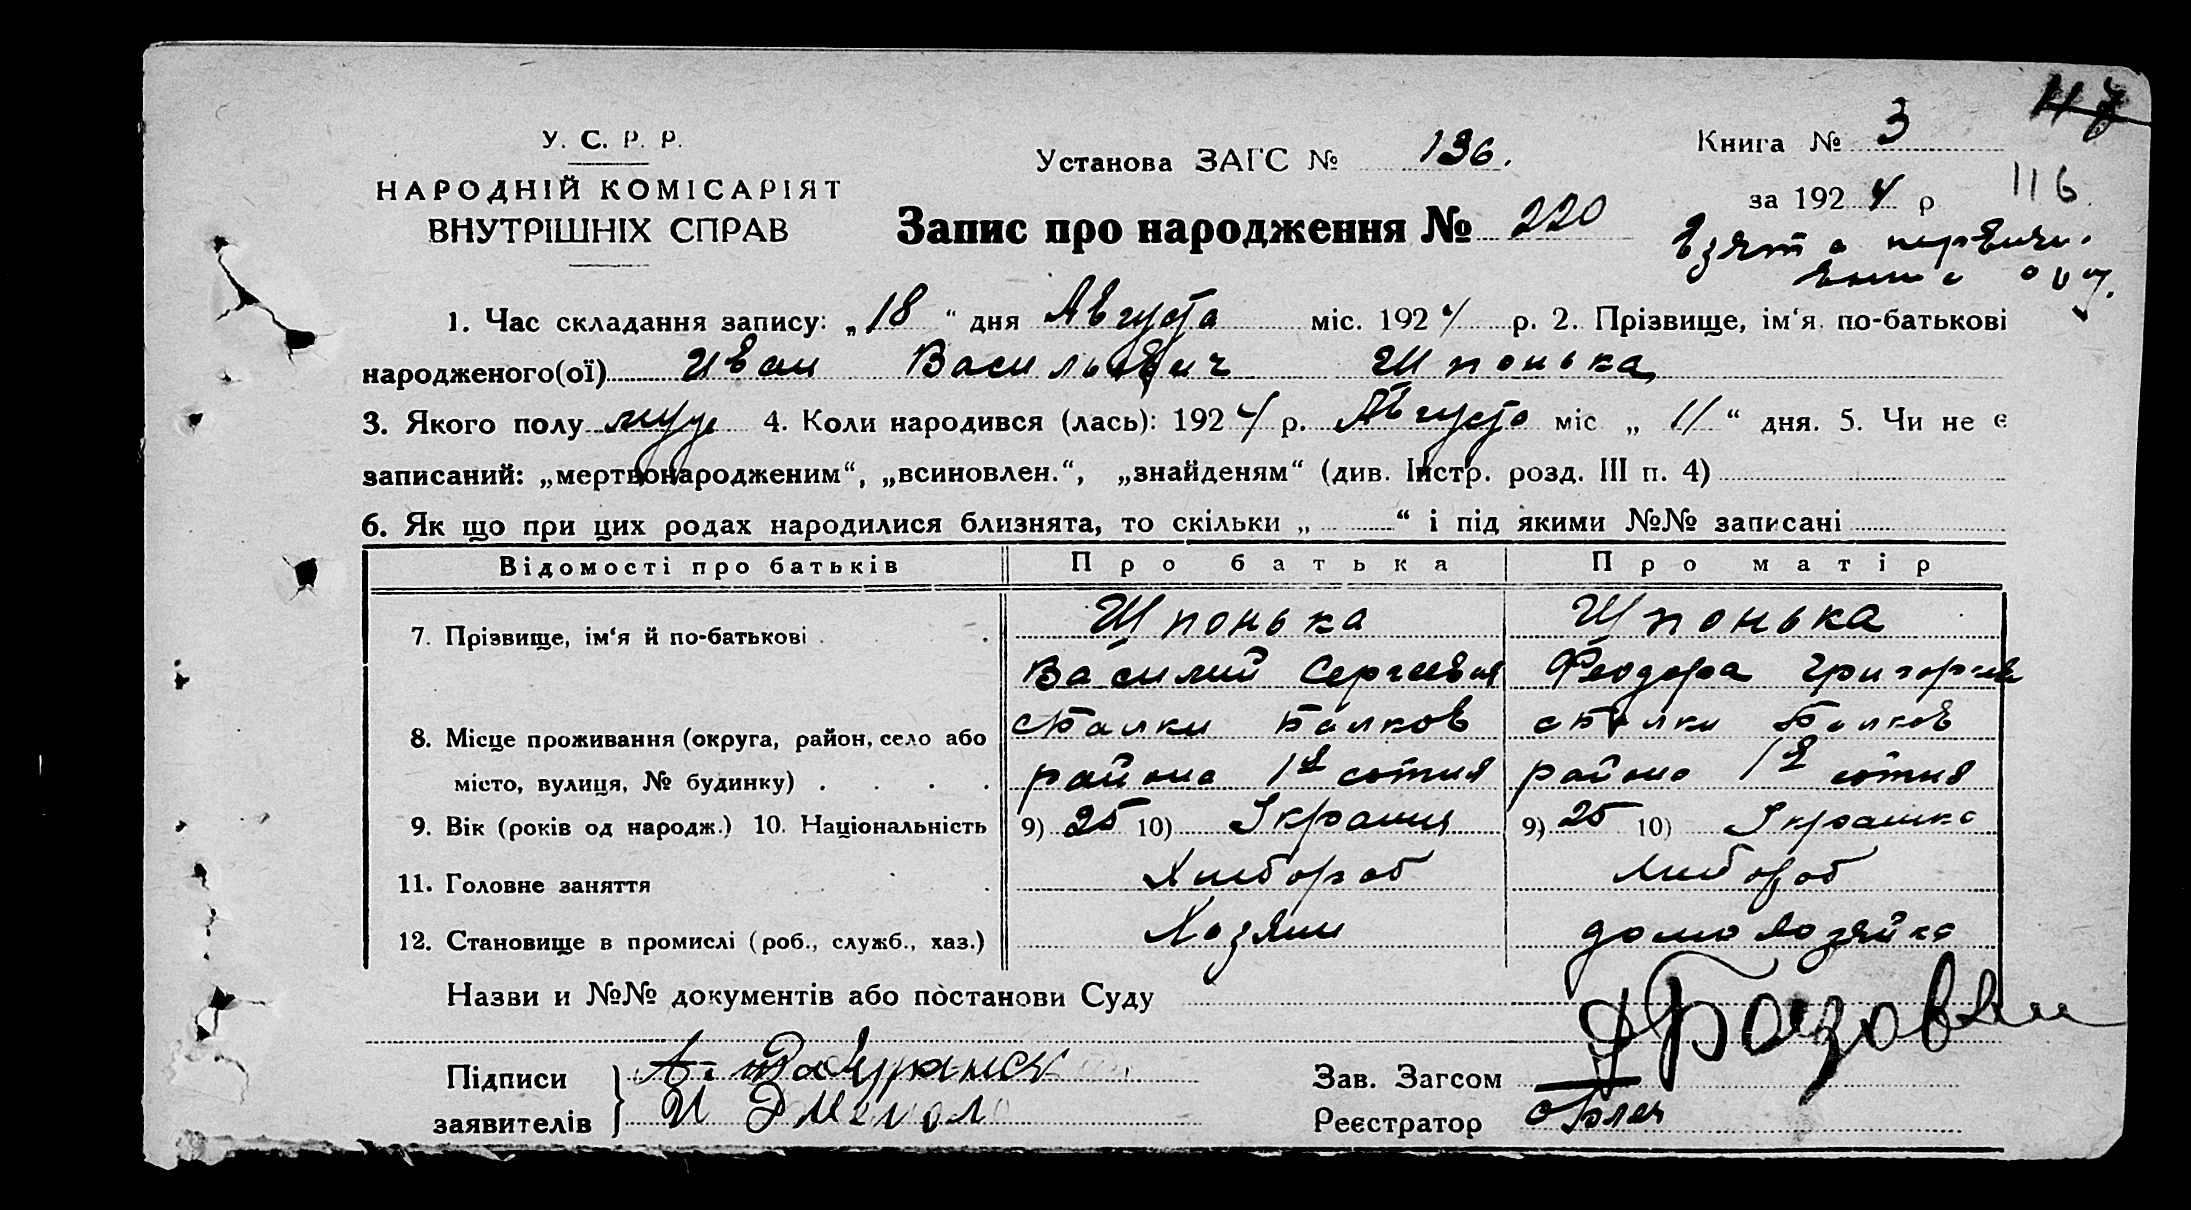 117
У. С. Р. Р.
НАРОДНІЙ КОМІСАРІЯТ
ВНУТРІШНІХ СПРАВ
Установа ЗАГС № 136.
Книга № 3
за 1924 р
116
Запис про народження № 220
1. Час складання запису: „18“ дня Августа міс. 1924 р. 2. Прізвище, ім‘я, по-батькові
народженого(ої) Иван Васильевич Шпонька
3. Якого полу муж 4. Коли народився (лась): 1924 р. Августа міс „11“ дня. 5. Чи не є
записаний: „мертвонародженим“, „всиновлен.“, „знайденям“ (див. Інстр. розд. III п. 4)
6. Як що при цих родах народилися близнята, то скільки „ “ і під якими №№ записані
Відомості про батьків Про батька Про матір
7. Прізвище, ім‘я й по-батькові Шпонька Шпонька
Василий Сергеевич Феодора Григорьев
8. Місце проживання (округа, район, село або с Балки Балков с Балки Балков
місто, вулиця, № будинку) района 1я сотня района 1я сотня
9. Вік (років од народж.) 10. Національність 9) 25 10) Украин 9) 25 10) Украинка
11. Головне заняття Хлебороб Хлебороб
12. Становище в промислі (роб., служб., хаз.) Хозяин домохозяйка
Назви и №№ документів або постанови Суду
Підписи
заявителів
Зав. Загсом
Реєстратор